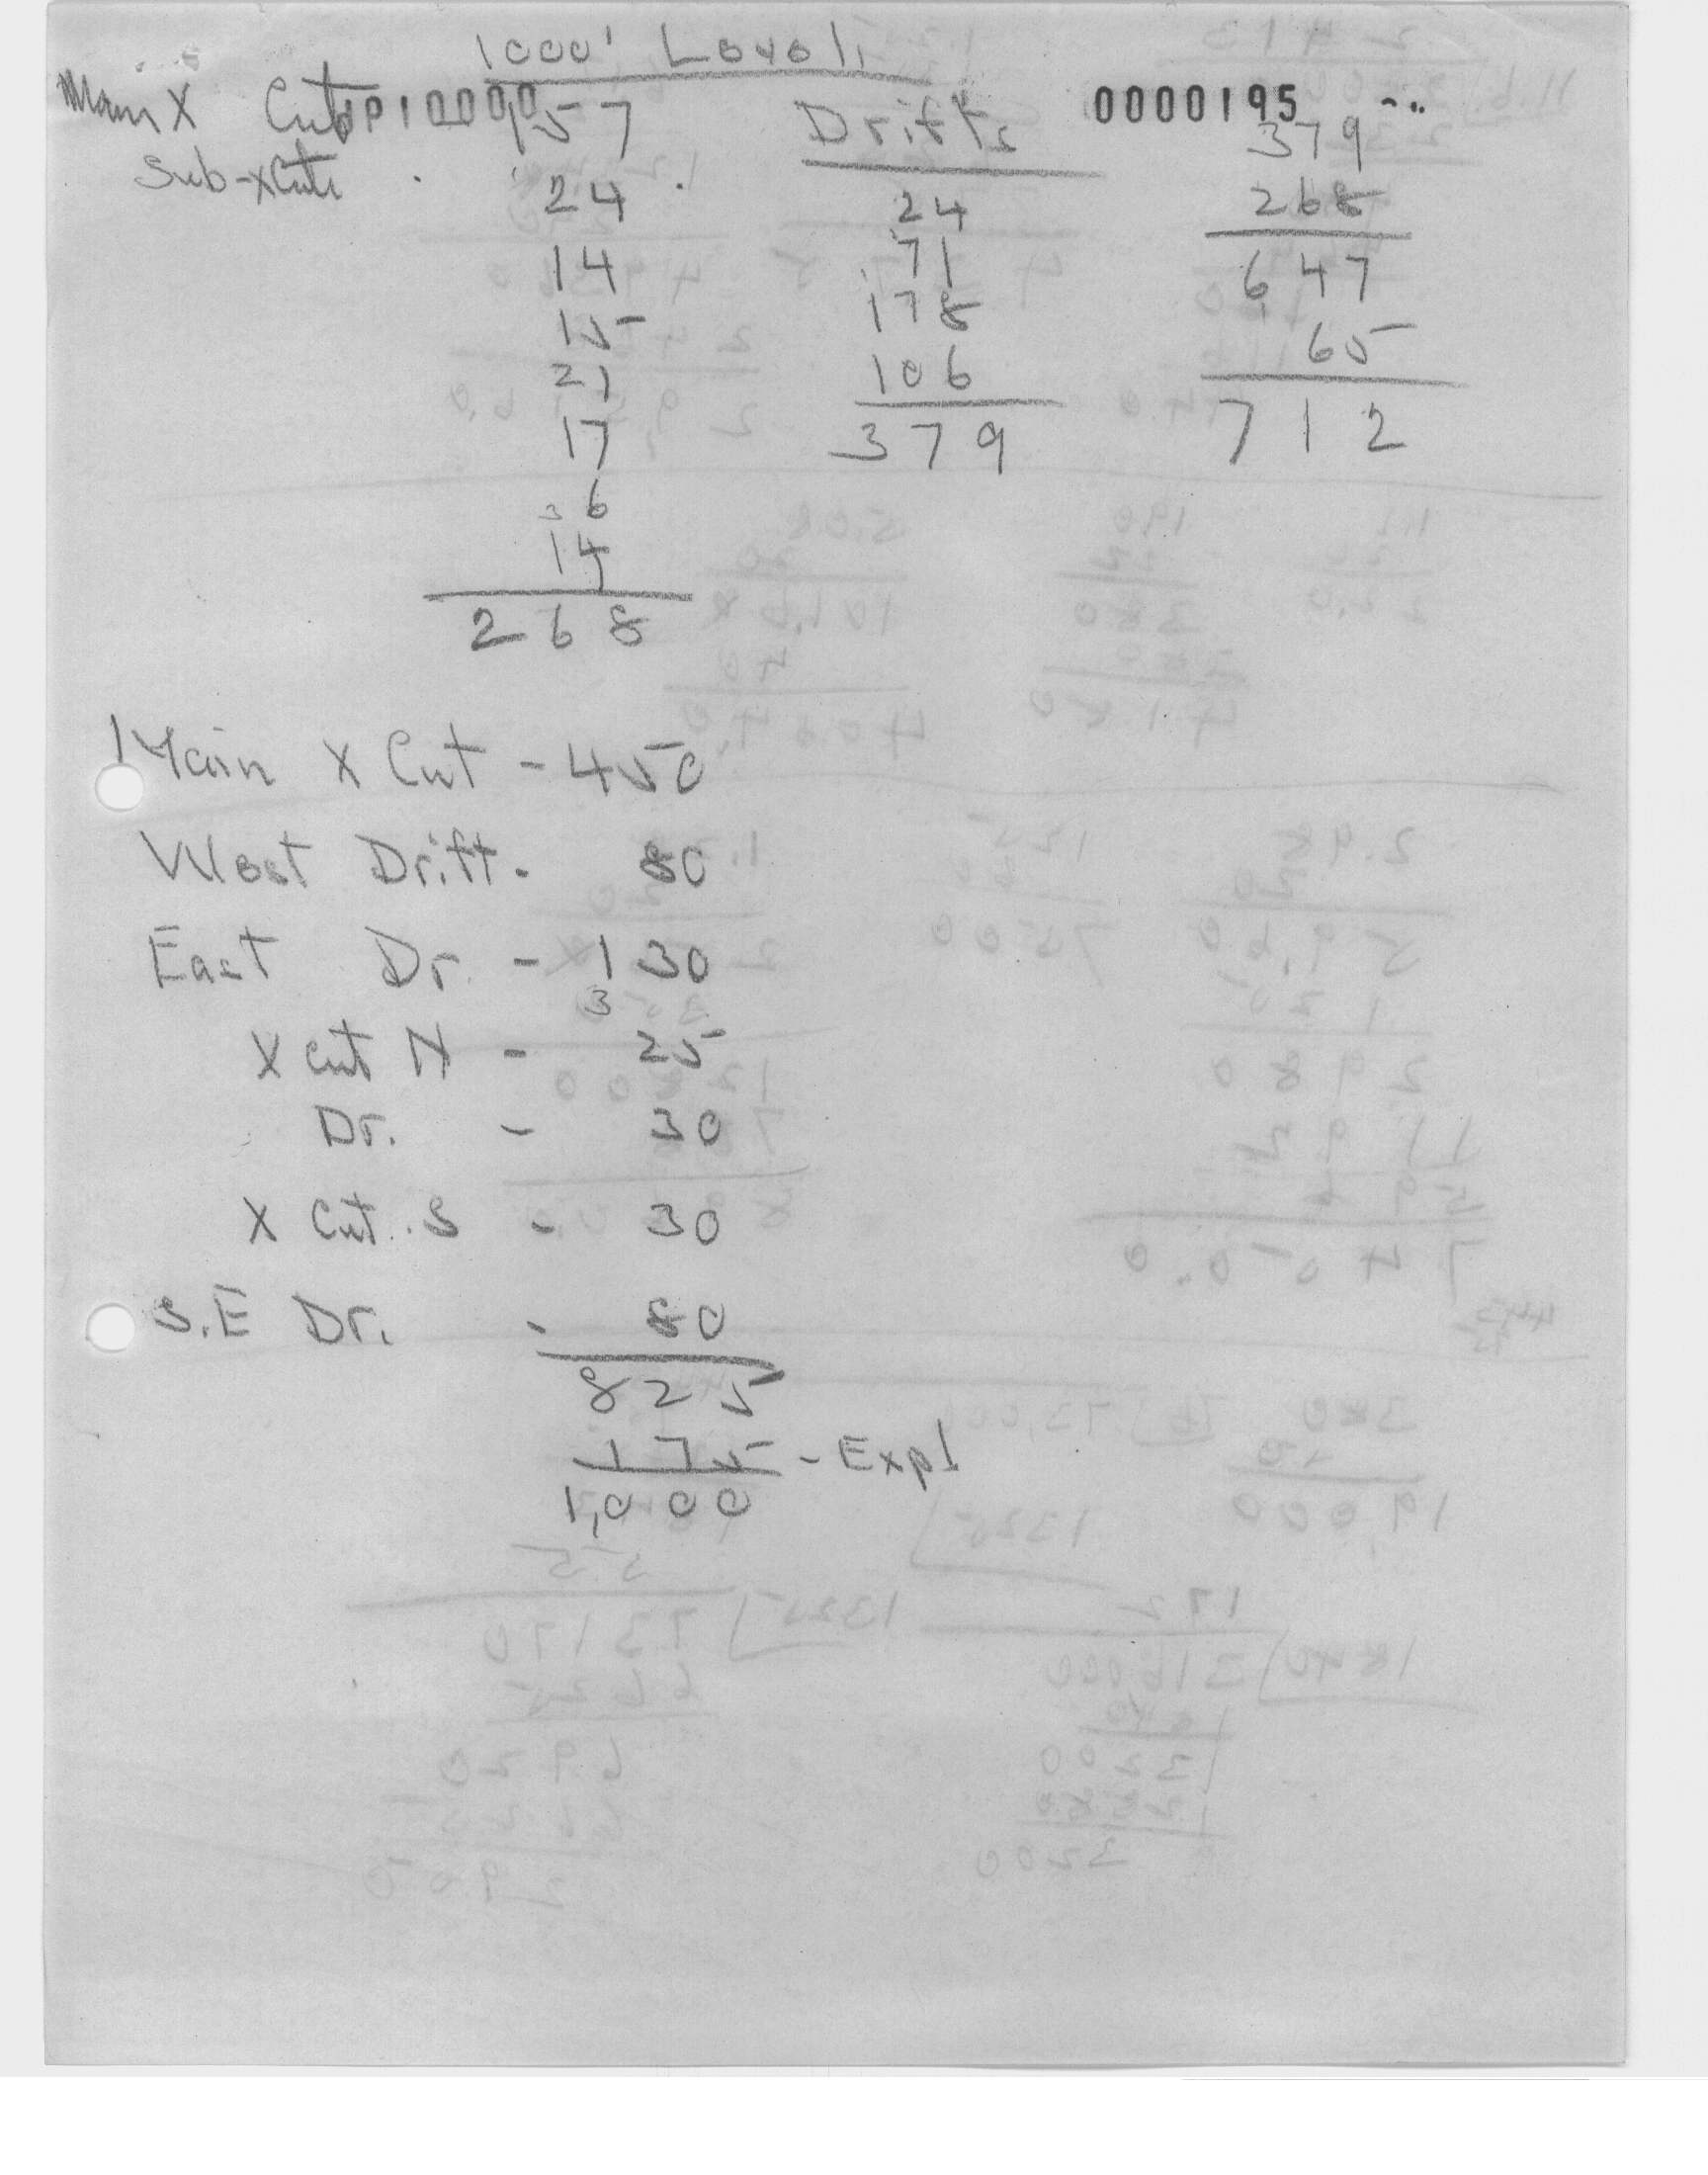 1000' Level
Main X Cut 157 Drifts 0000195 379
Sub-xCuts 24 24 268
14 71 647
15 178 65
21 106 712
17 379
3 6
14
268
Main X Cut - 450
West Drift - 80
East Dr. - 130
3
X Cut N - 25
Dr. - 30
X Cut S - 30
S.E Dr. - 80
825
175 - Expl
1,000